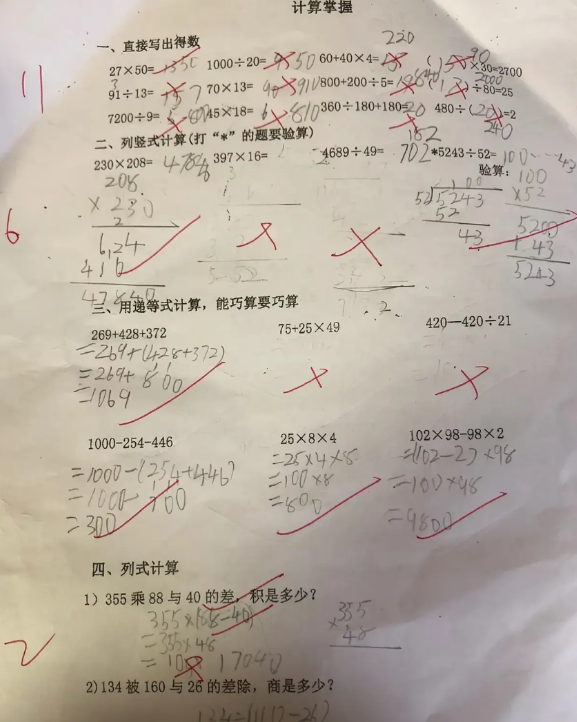 计算掌握
一、直接写出得数
220
27×50=1350 1000÷20= 50 60+40×4= ( 90 )×30=2700
91÷13= 7 70×13= 910 800+200÷5= 840 ( 2000 )÷80=25
7200÷9= 800 45×18= 810 360÷180+180= 480÷( )=2
182 240
二、列竖式计算(打“*”的题要验算)
230×208= 397×16= 4689÷49= 702 *5243÷52= 100……43
验算:
208
×230
6,24
416
47840
100
52 5243
52
43
100
×52
5200
+43
5243
三、用递等式计算，能巧算要巧算
269+428+372 75+25×49 420—420÷21
=269+(428+372)
=269+800
=1069
1000-254-446 25×8×4 102×98-98×2
=1000-(254+446) =25×4×8 =(102-2)×98
=1000-700 =100×8 =100×98
=300 =800 =9800
四、列式计算
1) 355 乘 88 与 40 的差，积是多少?
355×(88-40)
=355×48
= 17040
355
×48
2)134 被 160 与 26 的差除，商是多少?
134÷(160-26)
11
6
2